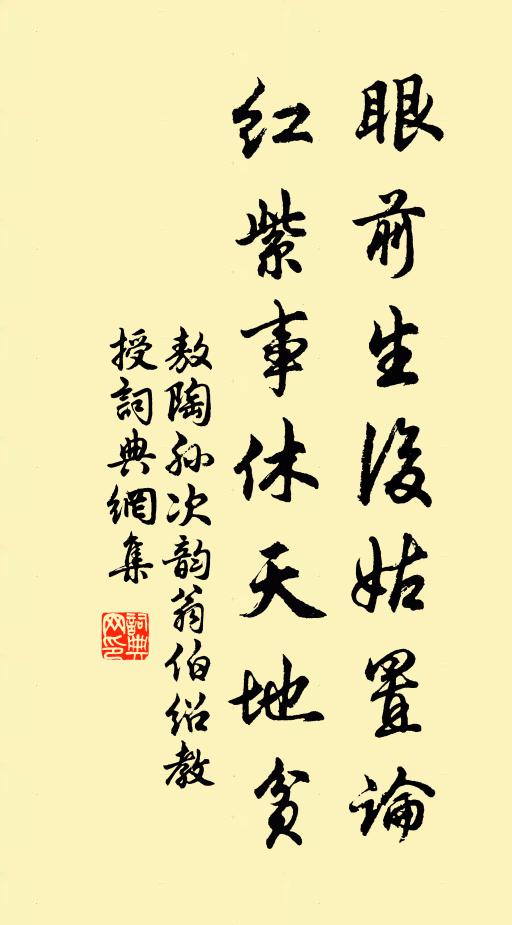 眼前生後姑置論
紅紫事休天地貧
敖陶孙次韵翁伯绍教
授詞典網集
詞典网印